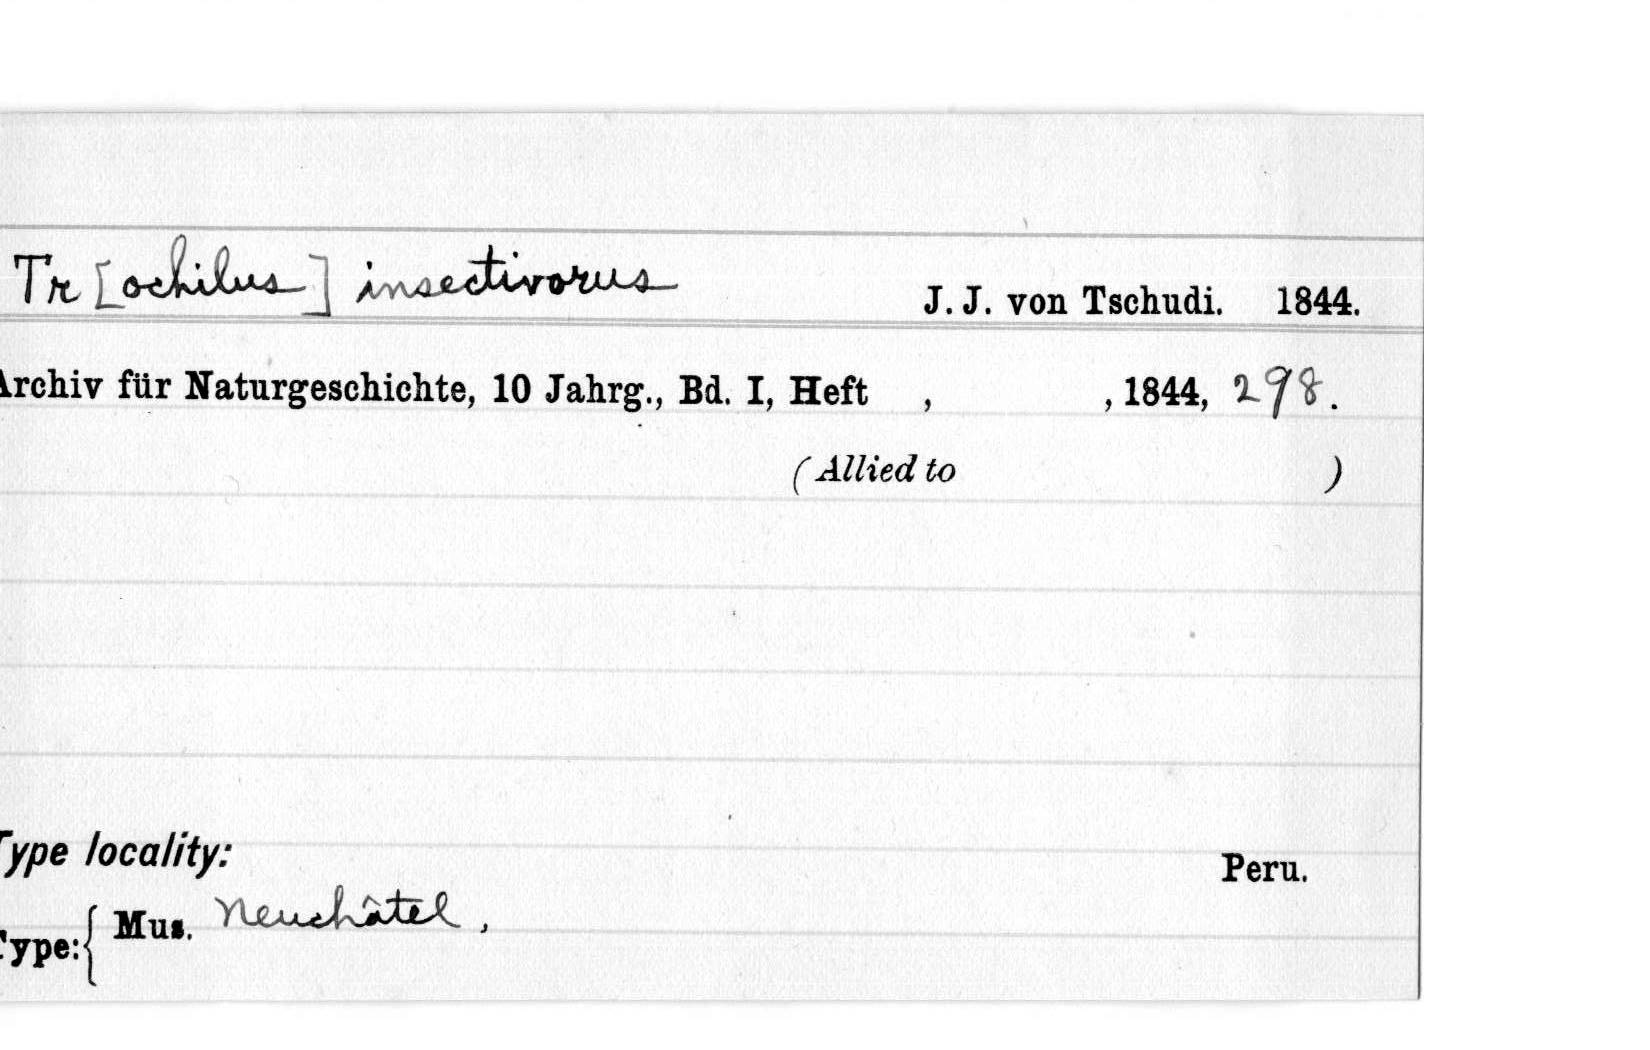 Tr[ochilus] insectivorus J. J. von Tschudi. 1844.
Archiv für Naturgeschichte, 10 Jahrg., Bd. I, Heft , , 1844, 298.
(Allied to )
Type locality: Peru.
Type: { Mus. Neuchâtel,